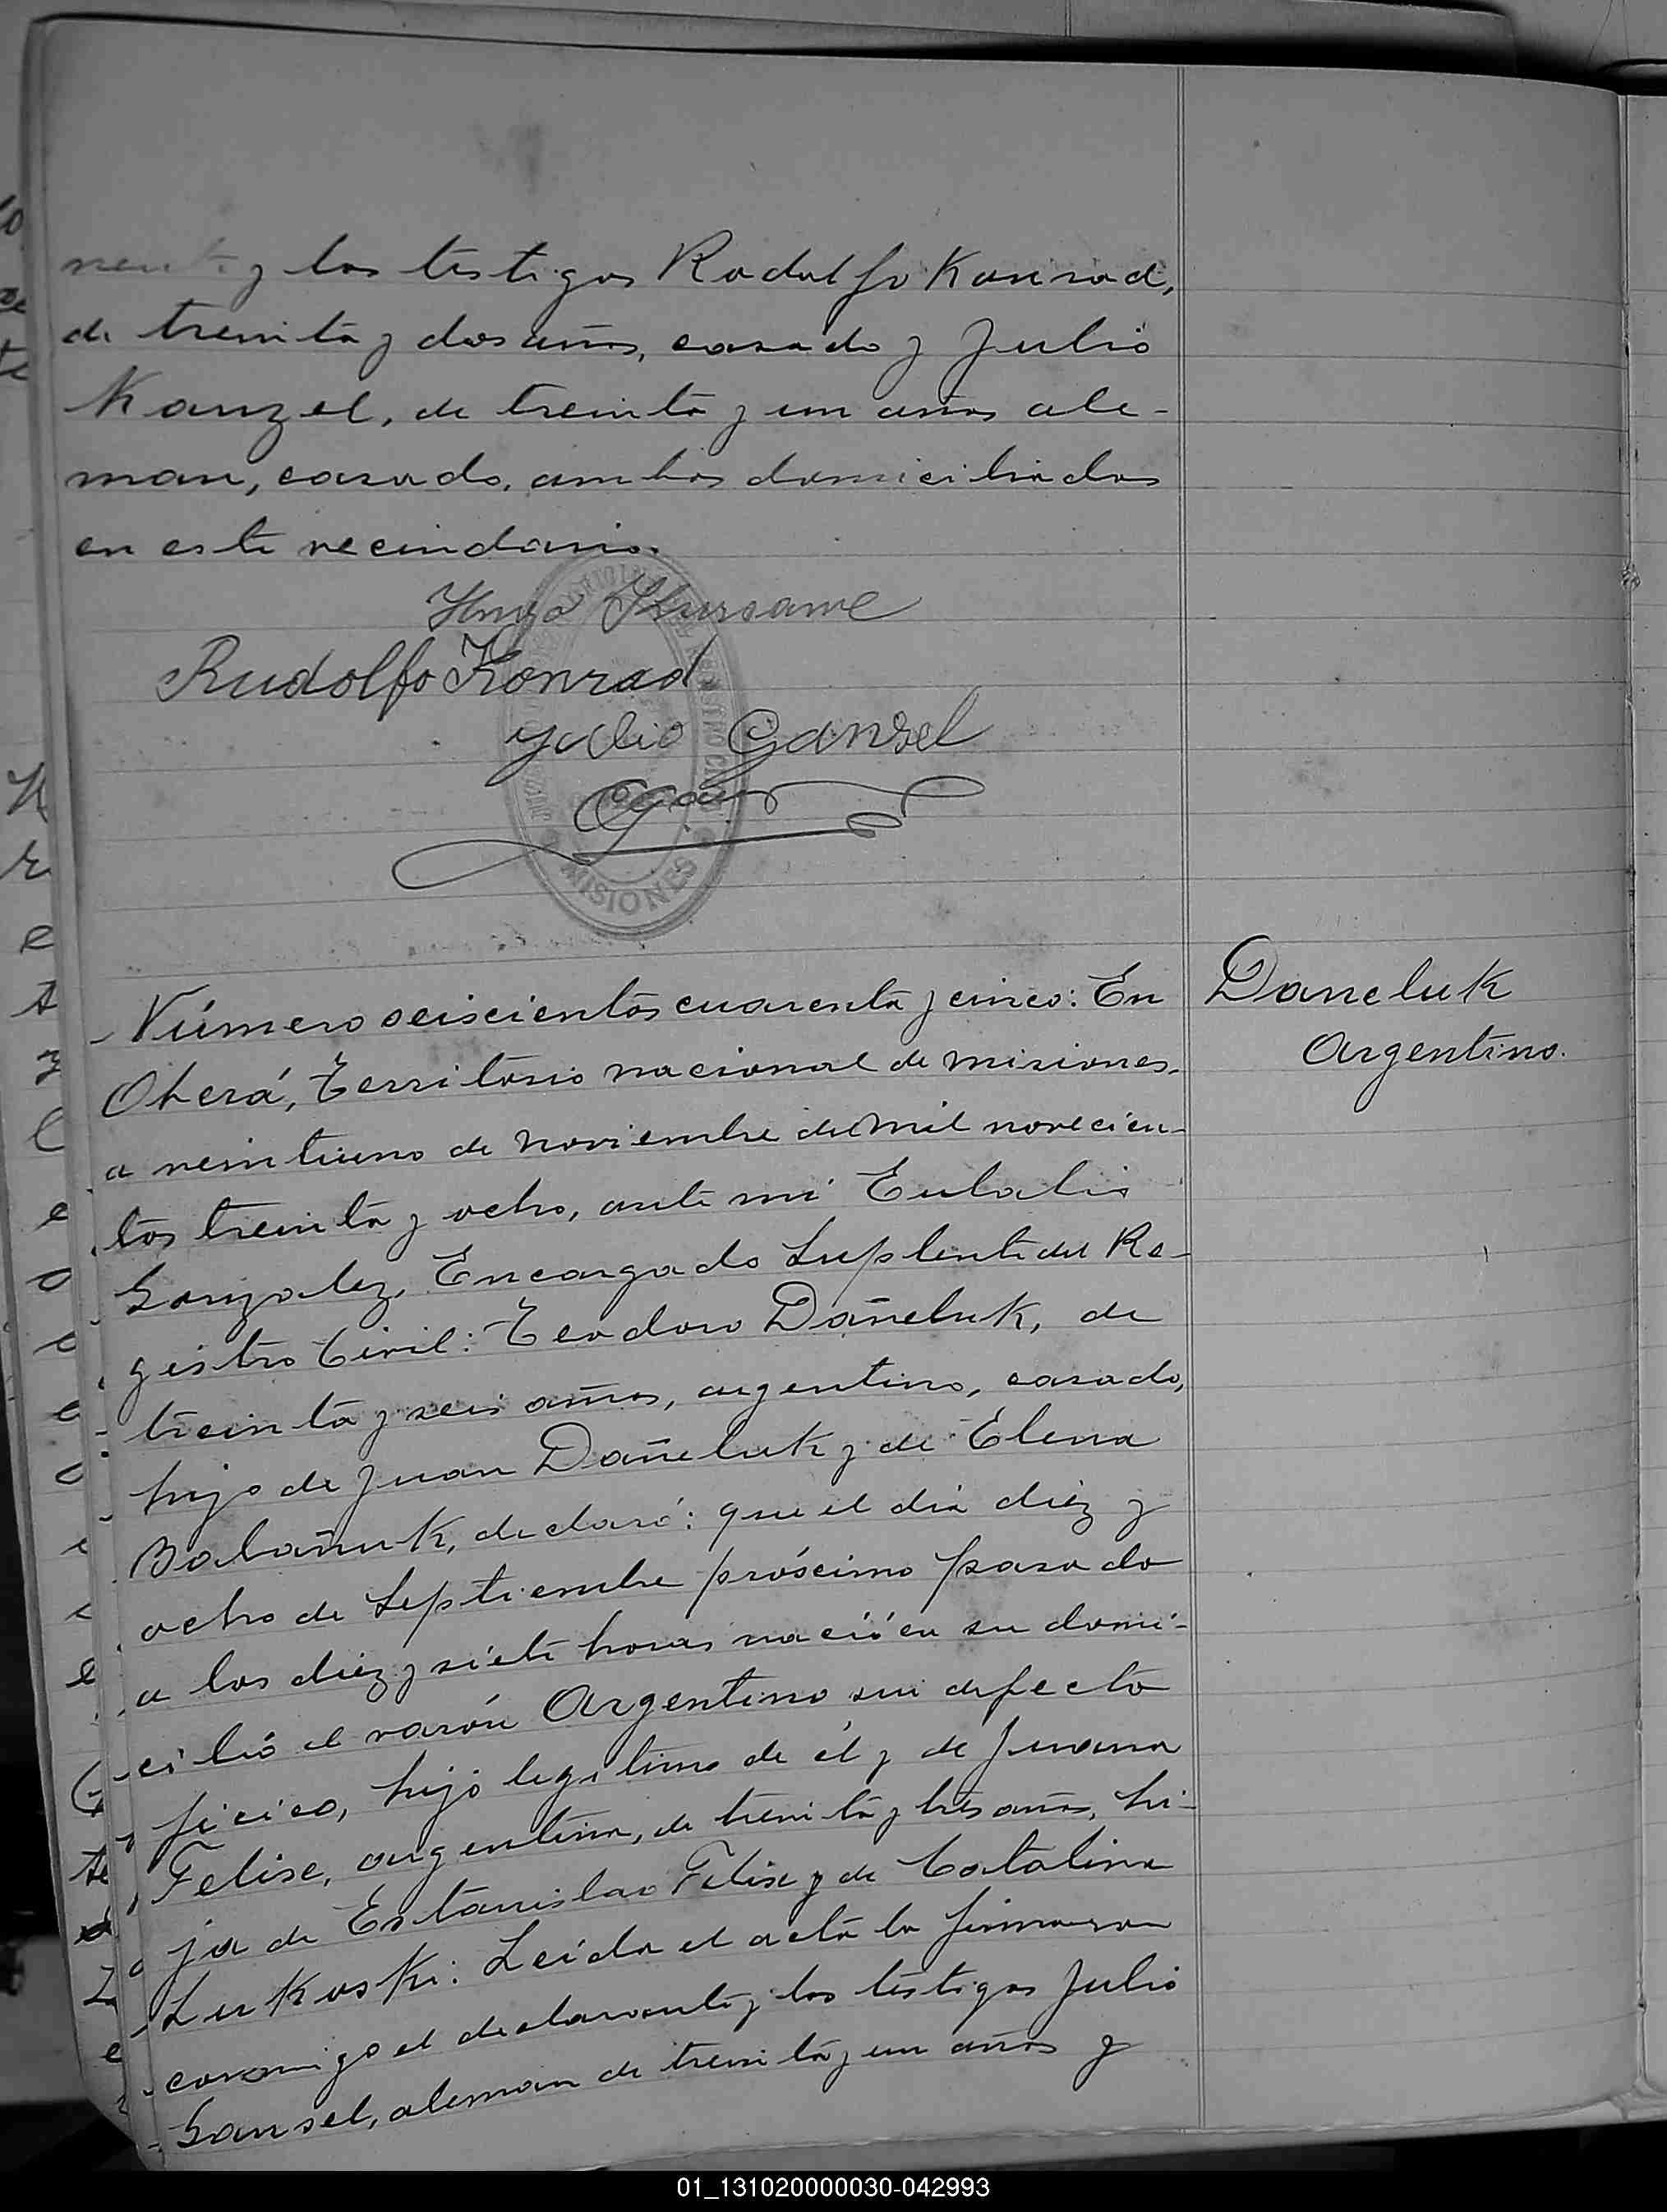 y los testigos Rodolfo Konrad,
de treinta y dos años, casado y Julio
Kanzel, de treinta y un años ale-
man, casado, ambos domiciliados
en este vecindario.
Hugo
Rudolfo Konrad
Julio Gansel
MISIONES
Número seiscientos cuarenta y cinco: En
Oberá, Territorio nacional de misiones,
a veintiuno de Noviembre de mil novecien-
tos treinta y ocho, ante mi Eulalio
Gonzalez, Encargado Suplente del Re-
gistro Civil: Teodoro Dañeluk, de
treinta y seis años, argentino, casado,
hijo de Juan Dañeluk y de Elena
Balañuk, declaró: que el dia diez y
ocho de Septiembre próscimo pasado
a las diez y siete horas nació en su domi-
cilió el varón Argentino sin defecto
ficico, hijo legitimo de él y de Juana
Felise, argentina, de treinta y tres años, hi-
ja de Estanislao Felise y de Catalina
Lukoski: Leida el acta la firmaron
conmigo el declarante y los testigos Julio
Gansel, aleman de treinta y un años y
Daneluk
Argentino.
01_131020000030-042993